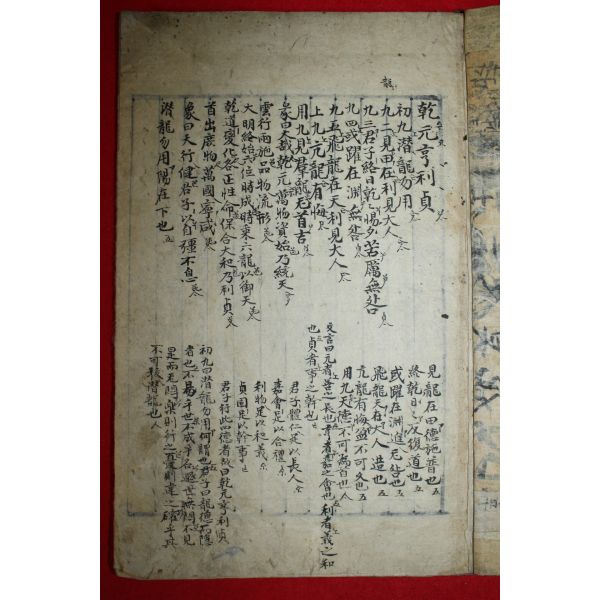 龍
乾元亨利貞
初九潛龍勿用
九二見田在利見大人
九三君子終日乾乾惕夕若厲無咎
九四或躍在淵無咎
九五飛龍在天利見大人
上九亢龍有悔
用九見羣龍无首吉
彖曰大哉乾元萬物資始乃統天
雲行雨施品物流形
大明終始六位時成時乘六龍以御天
乾道變化各正性命保合大和乃利貞
首出庶物萬國寧咸
象曰天行健君子以自彊不息
潛龍勿用陽在下也
見龍在田德施普也
終乾日反復道也
或躍在淵進无咎也
飛龍天在大人造也
亢龍有悔盈不可久也
用九天德不可為首也
文言曰元者善之長也亨者嘉之會也利者義之和
也貞者事之幹也
君子體仁足以長人
嘉會足以合禮
利物足以和義
貞固足以幹事
君子行此四德者故曰乾元亨利貞
初九曰潛龍勿用何謂也子曰龍德而隱
者也不易乎世不成乎名遯世無悶不見
是而无悶樂則行之憂則違之確乎其
不可拔潛龍也